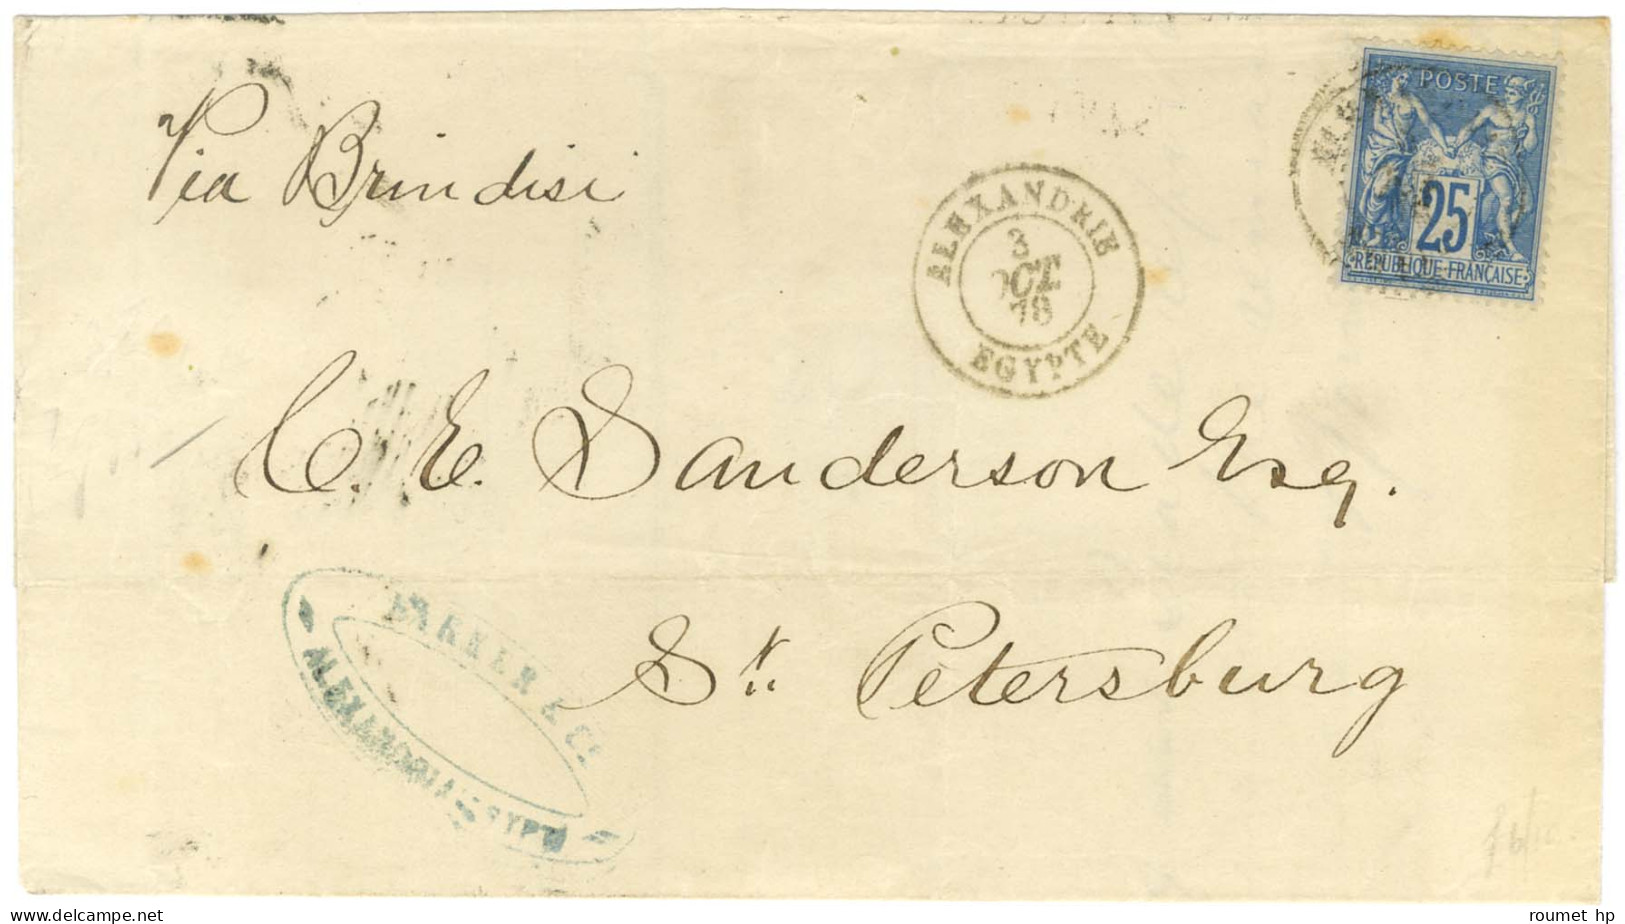 Via Brindisi
POSTE
25
REPUBLIQUE FRANCAISE
ALEXANDRIE
3
OCT.
78
EGYPTE
C. E. Sanderson Esq.
St. Petersburg
BARKER & Co.
ALEXANDRIA EGYPT
roumet hp